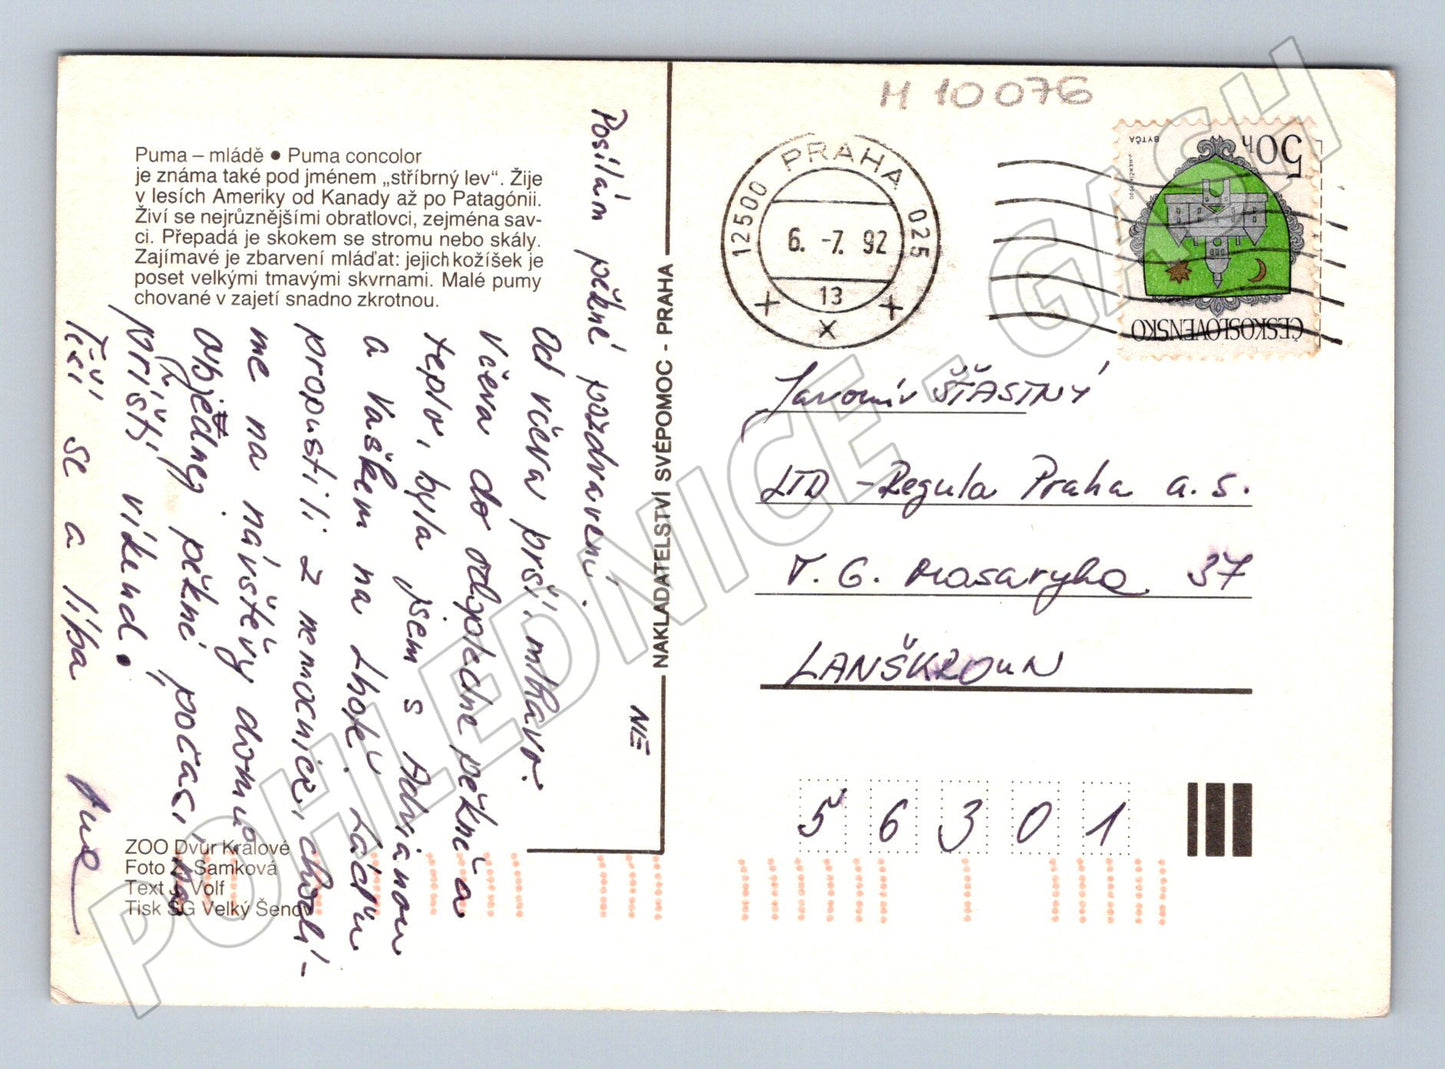 Puma – mládě ● Puma concolor
je známa také pod jménem „stříbrný lev“. Žije
v lesích Ameriky od Kanady až po Patagónii.
Živí se nejrůznějšími obratlovci, zejména sav-
ci. Přepadá je skokem se stromu nebo skály.
Zajímavé je zbarvení mláďat: jejich kožíšek je
poset velkými tmavými skvrnami. Malé pumy
chované v zajetí snadno zkrotnou.
Posílám pěkné pozdravení.
Od včera prší, mlhavo.
Včera do odpoledne pěkně a
teplo, byla jsem s Adrianou
a Vaškem na Lhotě. Ládu
propustili z nemocnice, chvalí-
me na návštěvy domů
objednej pěkné počasí na
příští víkend.
Těší se a líbá
NAKLADATELSTVÍ SVÉPOMOC - PRAHA
NIE
ZOO Dvůr Králové
Foto Z. Samková
Text J. Volf
Tisk SG Velký Šenov
M 10076
PRAHA 025
12500
6. -7. 92
13
50 h
BYTČA
ČESKOSLOVENSKO
Jaromír ŠŤASTNÝ
LTD - Regula Praha a.s.
T. G. Masaryka 37
LANŠKROUN
56301
POHLEDNICE - GASH